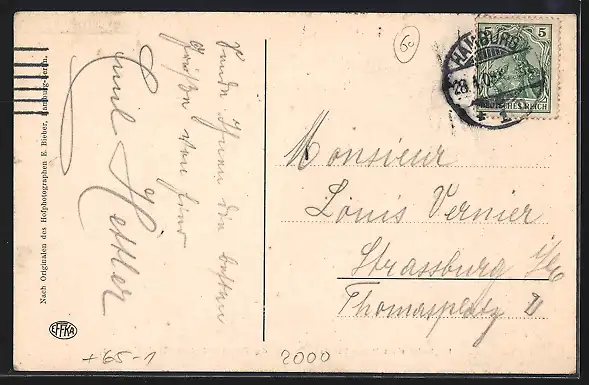 Nach Originalen des Hofphotographen E. Bieber, Hamburg-Berlin.
EFFKA
Sende Ihnen die besten
Grüße von hier
Emil Hettler
6
HAMBURG
28.
1
5
DEUTSCHES REICH
Monsieur
Louis Vernier
Strassburg i/E
Thomasplatz
+65-1
2000